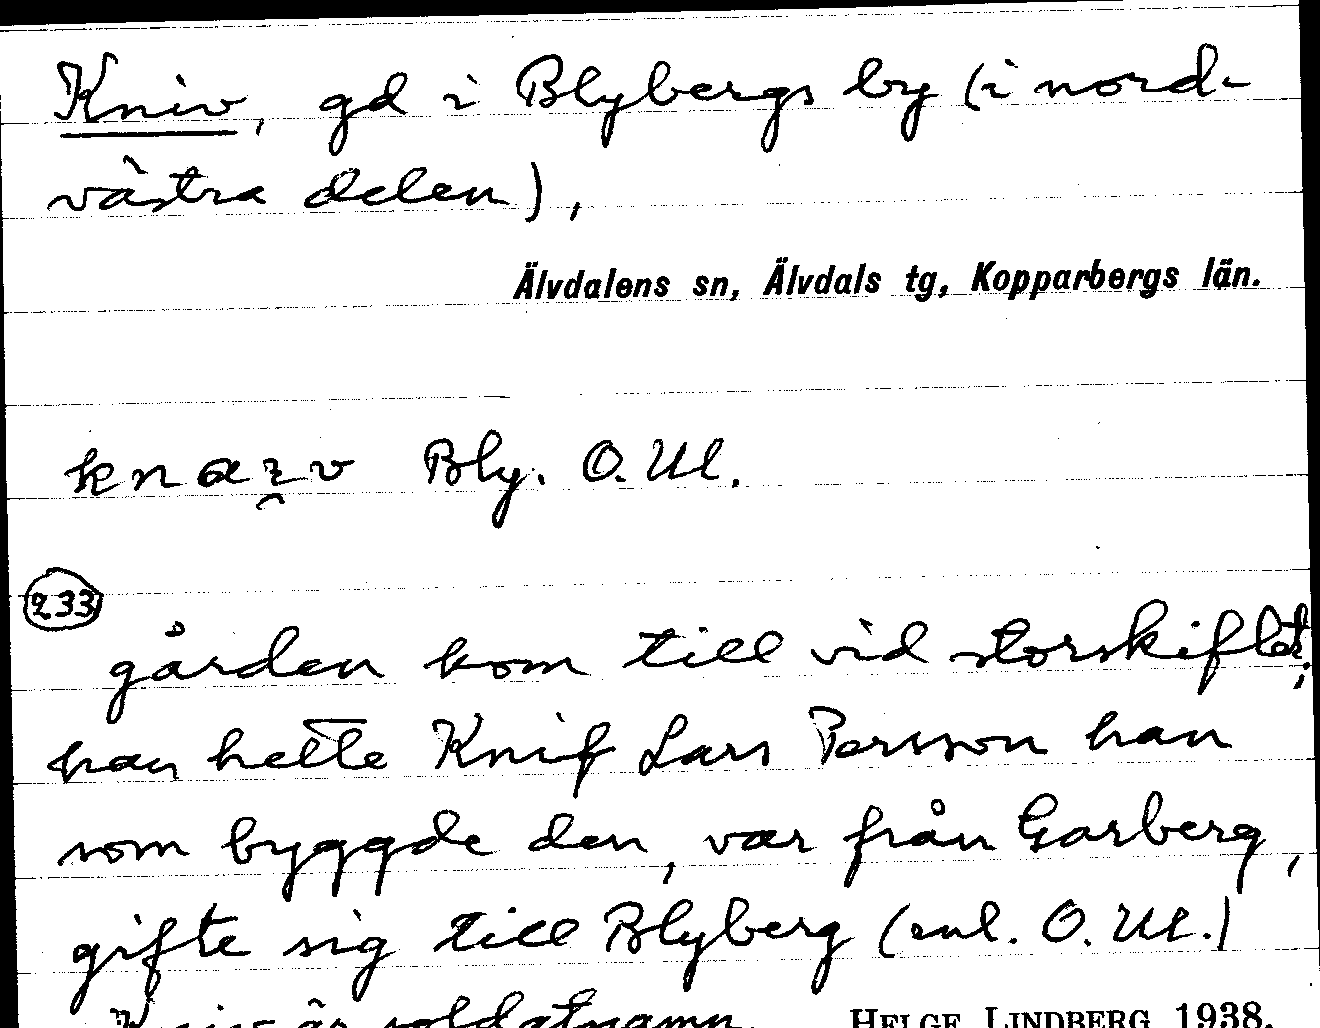 Kniv, gd i Blybergs by (i nord-
västra delen),
Älvdalens sn, Älvdals tg, Kopparbergs län.
Bly. O. Ul.
233
gården kom till vid storskiftet;
han hette Knif Lars Persson han
som byggde den, var från Garberg,
gifte sig till Blyberg (enl. O. Ul.)
Kniv är soldatnamn.
HELGE LINDBERG 1938.